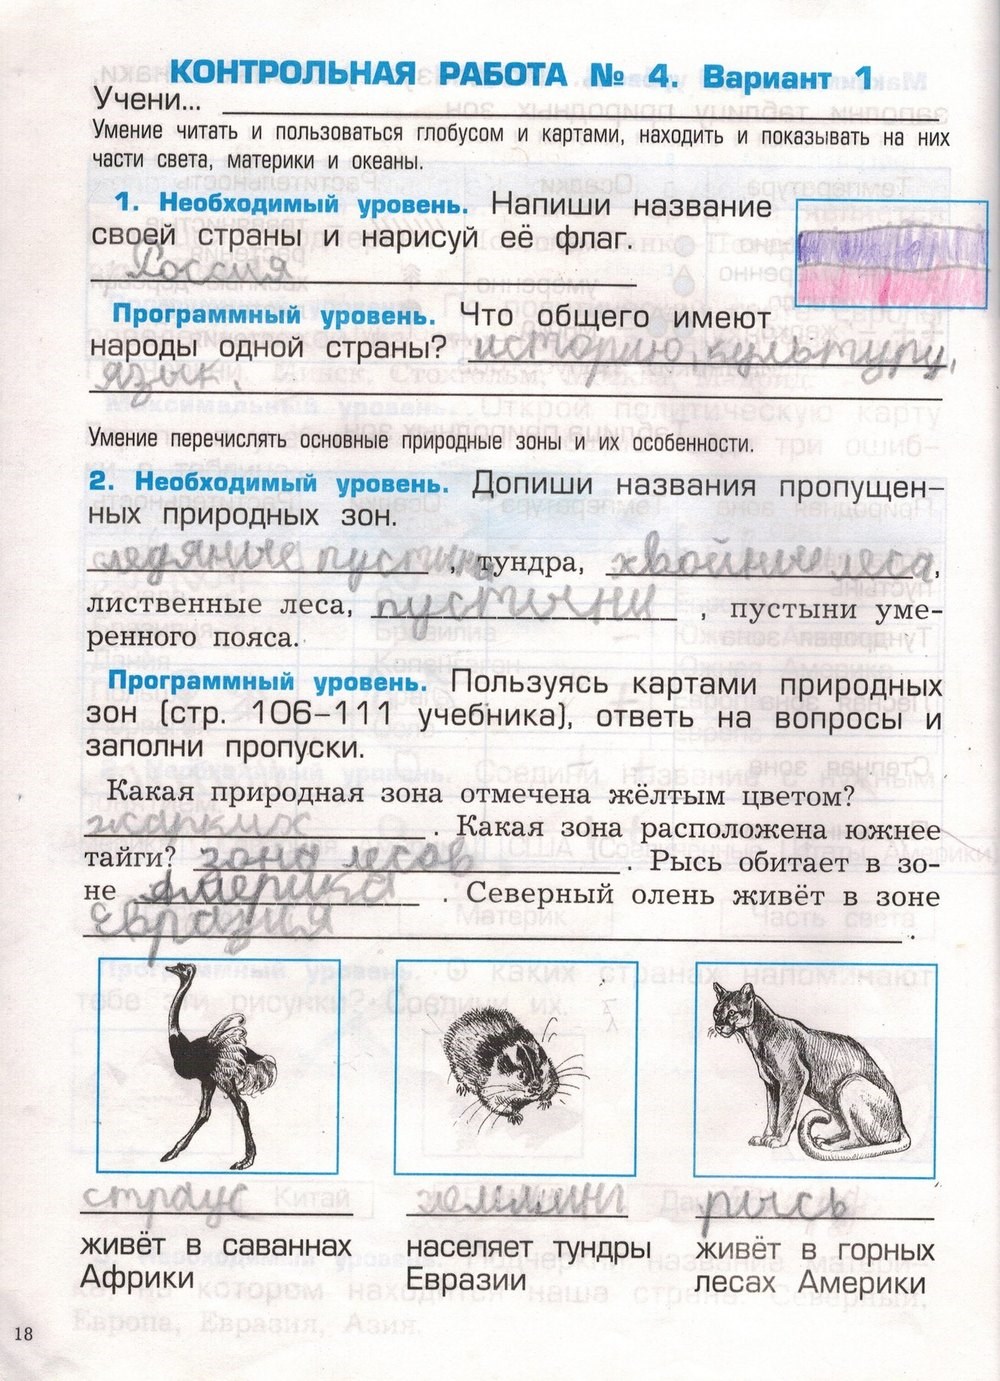 КОНТРОЛЬНАЯ РАБОТА № 4. Вариант 1
Учени...
Умение читать и пользоваться глобусом и картами, находить и показывать на них
части света, материки и океаны.
1. Необходимый уровень. Напиши название
своей страны и нарисуй её флаг.
Россия
Программный уровень. Что общего имеют
народы одной страны? историю, культуру,
язык.
Умение перечислять основные природные зоны и их особенности.
2. Необходимый уровень. Допиши названия пропущен-
ных природных зон.
ледяные пустыни, тундра, хвойные леса,
лиственные леса, , пустыни уме-
ренного пояса.
Программный уровень. Пользуясь картами природных
зон (стр. 106–111 учебника), ответь на вопросы и
заполни пропуски.
Какая природная зона отмечена жёлтым цветом?
жарких. Какая зона расположена южнее
тайги? зона лесов. Рысь обитает в зо-
не Америка. Северный олень живёт в зоне
Евразия.
страус лемминг рысь
живёт в саваннах населяет тундры живёт в горных
Африки Евразии лесах Америки
18